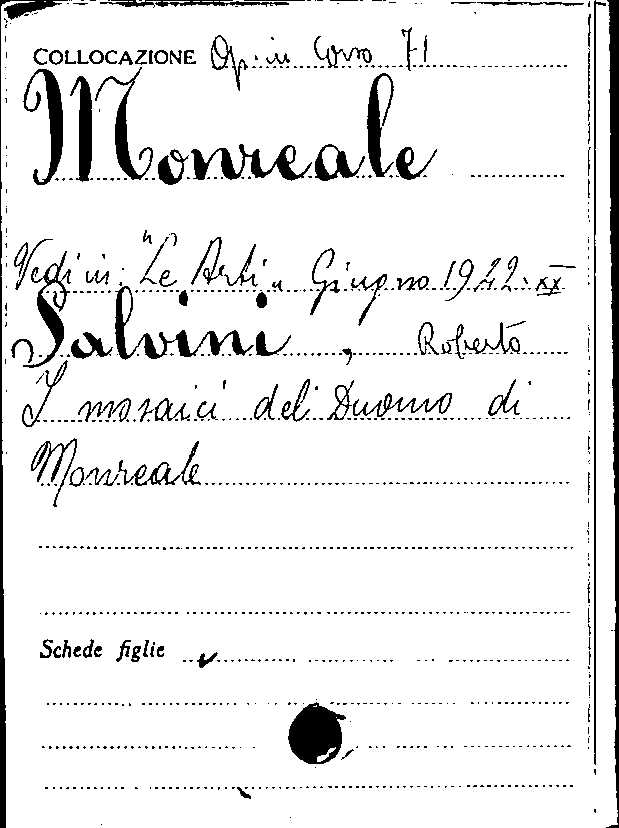 COLLOCAZIONE Op. in Corso 71
Monreale
Vedi in: "Le Arti" Giugno 1942. XX
Salvini, Roberto
I mosaici del Duomo di
Monreale
Schede figlie